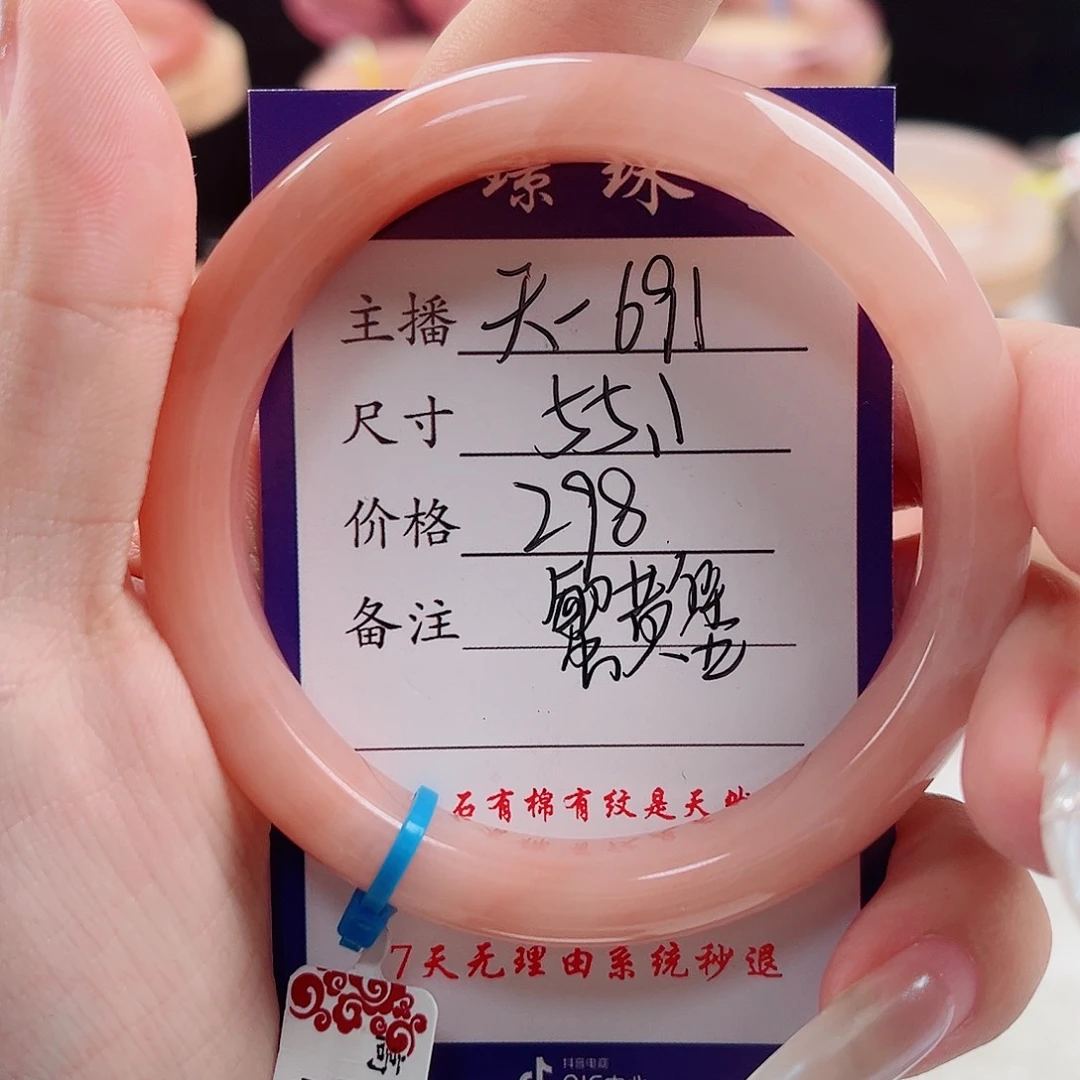 璟珠
主播 天-691
尺寸 55.1
价格 298
备注
石有棉有纹是天然
7天无理由系统秒退
抖音电商